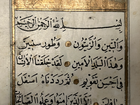 بسم الله الرحمن الرحيم
والتين والزيتون وطور سينين
وهذا البلد الأمين لقد خلقنا الإنسان
في أحسن تقويم ثم رددناه أسفل